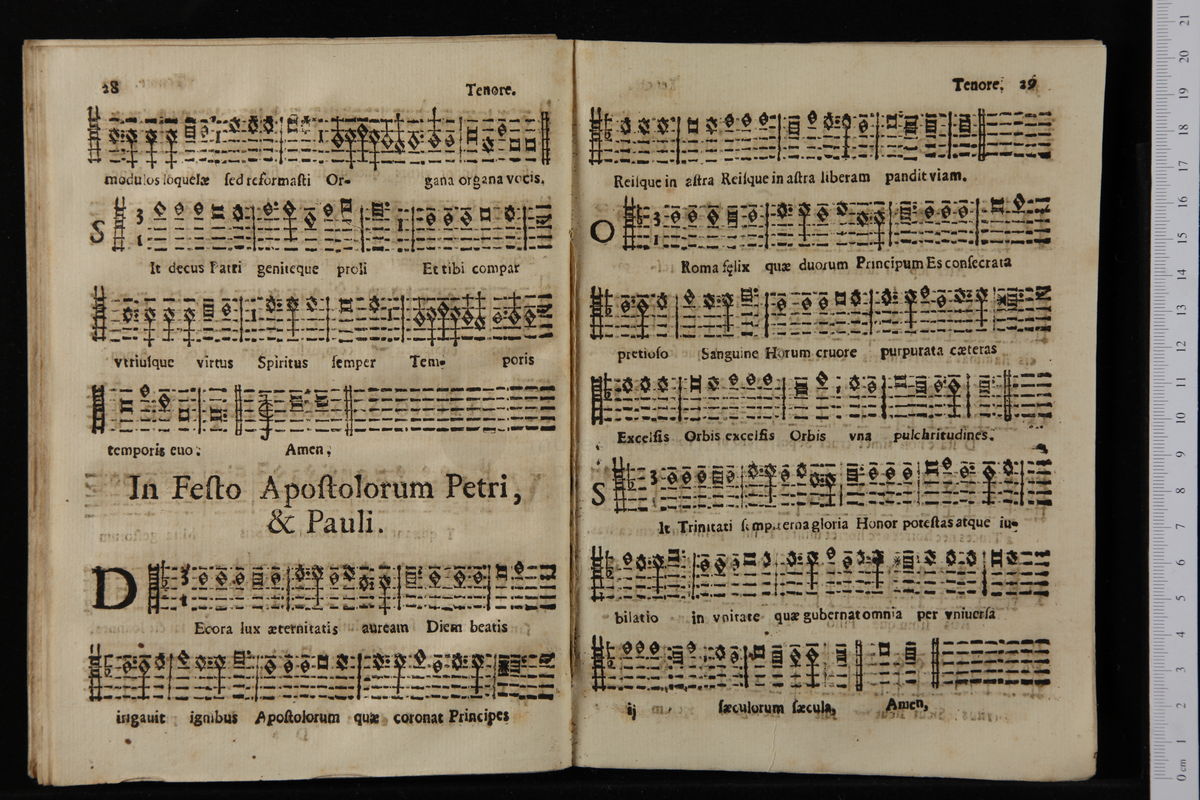 28
Tenore.
modulos loquelæ ſed reformaſti Or- gana organa vocis.
S
It decus Patri geniteque proli Et tibi compar
vtriuſque virtus Spiritus ſemper Tem- poris
temporis euo. Amen,
In Feſto Apoſtolorum Petri,
& Pauli.
D
Ecora lux æternitatis auream Diem beatis
irigauit ignibus Apoſtolorum quæ coronat Principes
Tenore. 29
Reiſque in aſtra Reiſque in aſtra liberam pandit viam.
O
Roma fęlix quæ duorum Principum Es conſecrata
pretioſo Sanguine Horum cruore purpurata cæteras
Excelſis Orbis excelſis Orbis vna pulchritudines.
S
It Trinitati ſempiterna gloria Honor poteſtas atque iu-
bilatio in vnitate quæ gubernat omnia per vniuerſa
ij ſæculorum ſæcula, Amen,
21
20
19
18
17
16
15
14
13
12
11
10
9
8
7
6
5
4
3
2
1
0 cm